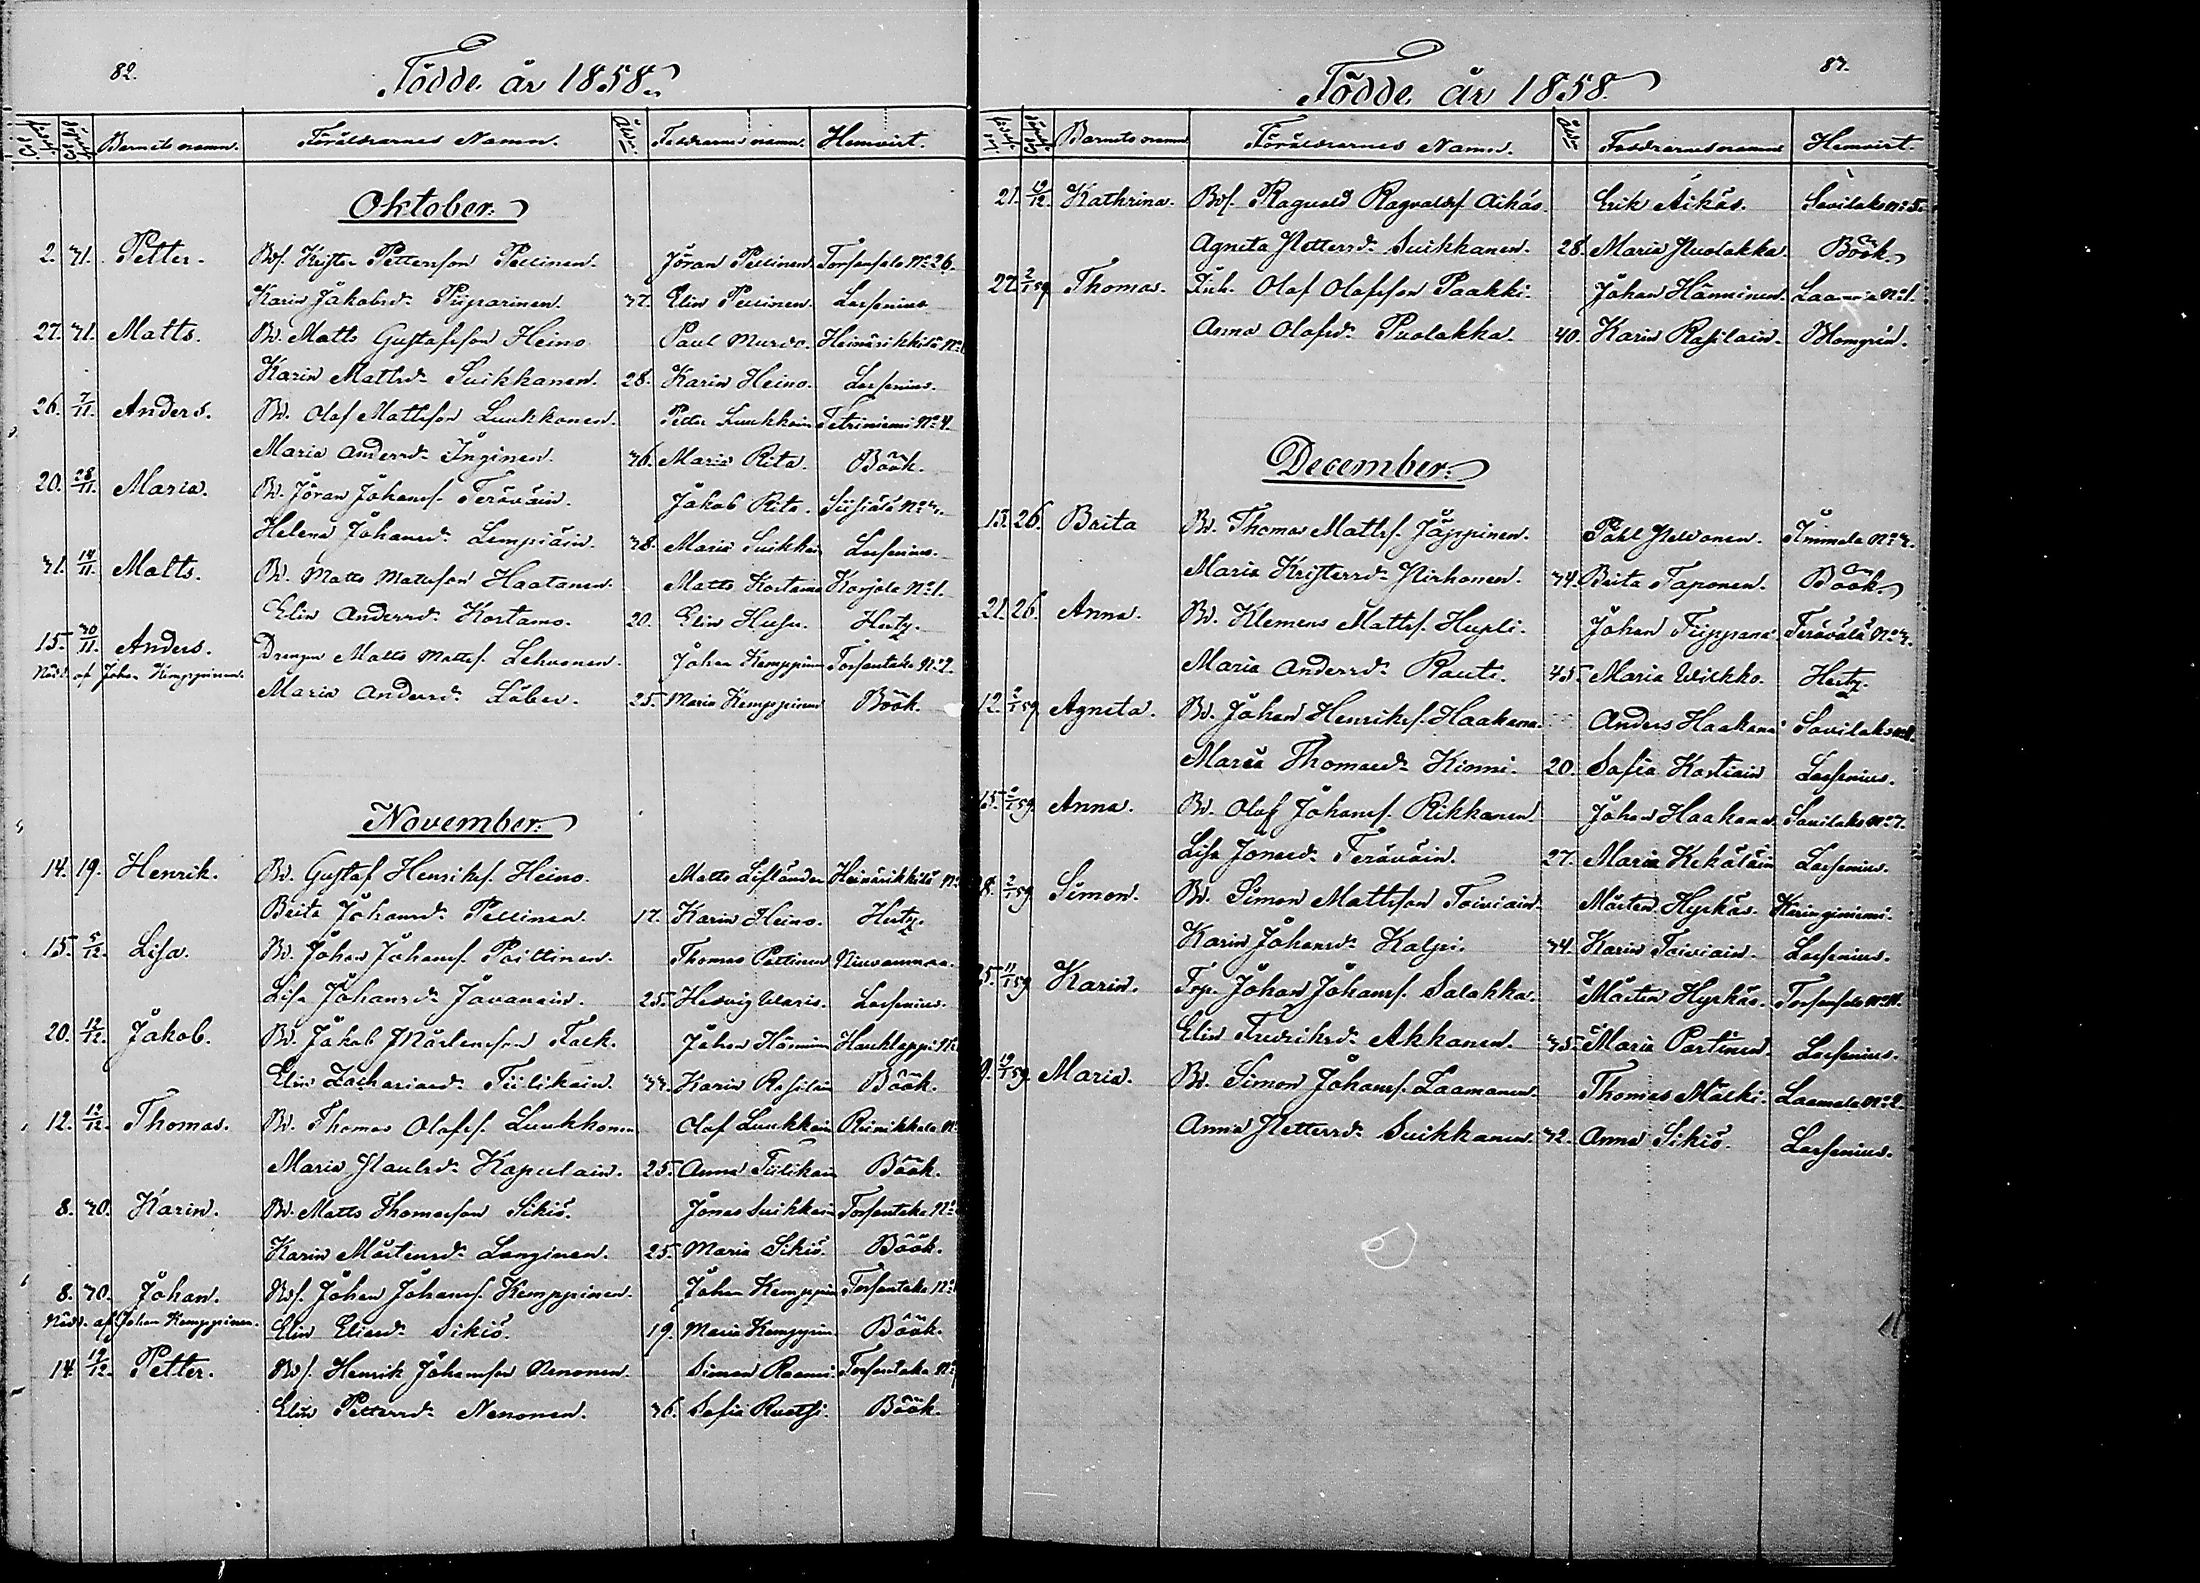 82.
Födde år 1858.
Barnets namn. Föräldrarnes Namn. Åld. Faddrarnes namn. Hemvist.
Oktober.
2. 31. Petter. Bds. Krister Pettersson Pellinen. Jöran Pellinen Torsansalo No 26.
Karin Jakobsdr Piiparinen. 37. Elin Pellinen. Lassenius
27. 31. Matts. Bd. Matts Gustafsson Heino Paul Muroo. Heinärikkilä No
Karin Mattsdr Suikkanen. 28. Karin Heino. Lassenius.
26. 7/11. Anders. Bd. Olof Mattsson Luukkonen. Petter Luukkain Tetriniemi No 4.
Maria Andersdr Inginen. 36. Maria Rita. Böök.
20. 28/11. Maria. Bd. Jöran Johanss. Teräväin. Jakob Rita. Siisiälä No 3.
Helena Johansdr Lempiäin. 38. Maria Suikka Lassenius.
31. 14/11. Matts. Bd. Matts Matsson Haatanen Matts Kostamo Karjola No 1.
Elin Andersdr Kostamo. 20. Elin Husu. Hertz.
15. 30/11. Anders. Drengen Matts Mattss. Lehvonen. Johan Kemppinen Torsantaka No 2.
Nödd. af Johan Kemppinen. Maria Andersdr Löber. 25. Maria Kemppinen Böök.
November.
14. 19. Henrik. Bd. Gustaf Henrikss. Heino. Matts Lifländer Heinärikkilä No
Brita Johansdr Pellinen. 17. Karin Heino. Hertz.
15. 5/12. Lisa. Bd. Johan Johanss. Poittinen. Thomas Pottinen
Lisa Johansdr Javanain. 25. Hedvig Waris. Lassenius.
20. 12/12. Jakob. Bd. Jakob Mårtensson Tack. Johan Hännin Hauklappi No
Elin Zachariasdr Tiilikain. 33. Karin Rasilain Böök.
12. 12/12. Thomas. Bd. Thomas Olofss. Luukkonen Olof Luukkain Reinikkala No
Maria Paulsdr Kapulain. 25. Anna Tiilikain Böök.
8. 30. Karin. Bd. Matts Thomasson Sikiö. Jonas Suikkain Torsantaka No
Karin Mårtensdr Longinen. 25. Maria Sikiö. Böök.
8. 30. Johan. Bds. Johan Johanss. Kemppinen. Johan Kemppin Torsantaka No
Nödd. af Johan Kemppinen. Elin Eliasdr Sikiö. 19. Maria Kemppin. Böök.
14. 19/12. Petter. Bds. Henrik Johansson Nenonen. Simon Raanni. Torsantaka No
Elin Pettersdr Nenonen. 36. Sofia Ruotsi. Böök.
83.
Födde år 1858.
Barnets namn Föräldrarnes Namn. Åld. Faddrarnes namn Hemvist.
21. 19/12. Kathrina. Bds. Ragvald Ragvaldss. Äikäs. Erik Äikäs. Savilaks No 5.
Agneta Pettersdr Suikkanen. 28. Maria Puolakka. Böök.
27. 2/1 59 Thomas. Inh. Olof Olofsson Paakki. Johan Hänninen. No 1.
Anna Olofsdr Puolakka. 40. Karin Rasilain. Blomgrén.
December.
13. 26. Brita Bd. Thomas Mattss. Jäppinen. Påhl Pelvonen. Immala No 3.
Maria Kristersdr Pirhonen. 34. Brita Taponen. Böök.
21. 26. Anna. Bd. Klemens Mattss. Hupli. Johan Tiippana Terävälä No 3.
Maria Andersdr Rauti. 45. Maria Wilkko. Hertz.
12. 2/1 59 Agneta. Bd. Johan Henrikss. Haakana. Anders Haakana Savilaks No 8.
Maria Thomasdr Kinni. 20. Sofia Kostiain Lassenius.
15. 2/1 59 Anna. Bd. Olof Johanss. Rikkanen Johan Haakana Savilaks No 7.
Lisa Jonasdr Teräväin. 27. Maria Kekäläin Lassenius.
28. 2/1 59 Simon. Bd. Simon Mattsson Toiviain. Mårten Hyrkäs. Käringiniemi.
Karin Johansdr Kalpi. 34. Karin Toiviain. Lassenius.
25. 11/1 59 Karin. Torp. Johan Johanss. Salakka. Mårten Hyrkäs. Torsansalo No
Elin Fredriksdr Akkanen. 35. Maria Partinen. Lassenius.
9. 19/1 59. Maria. Bd. Simon Johanss. Laamanen. Thomas Mälki. Laamala No 2.
Anna Pettersdr Suikkanen. 32. Anna Sikiö. Lassenius.